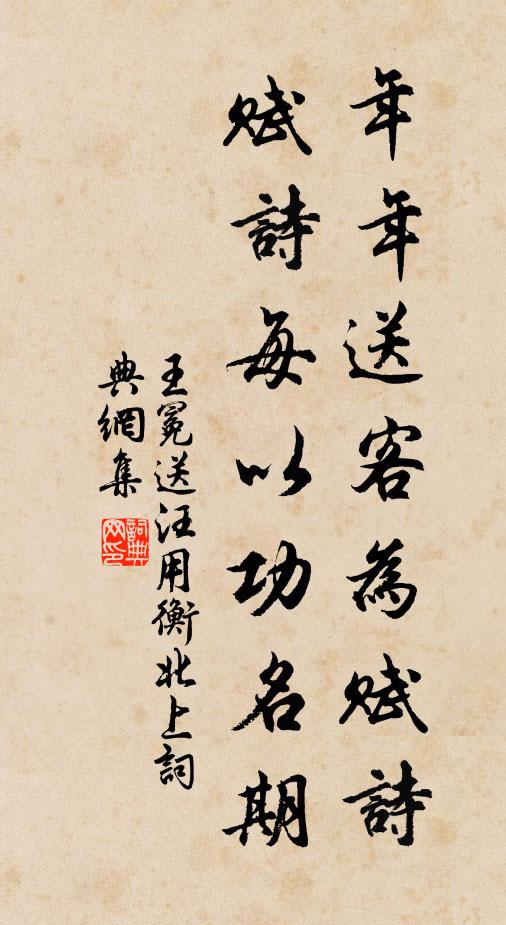 年年送客為賦詩
賦詩每以功名期
王冕送汪用衡北上詞
典網集
詞典網印